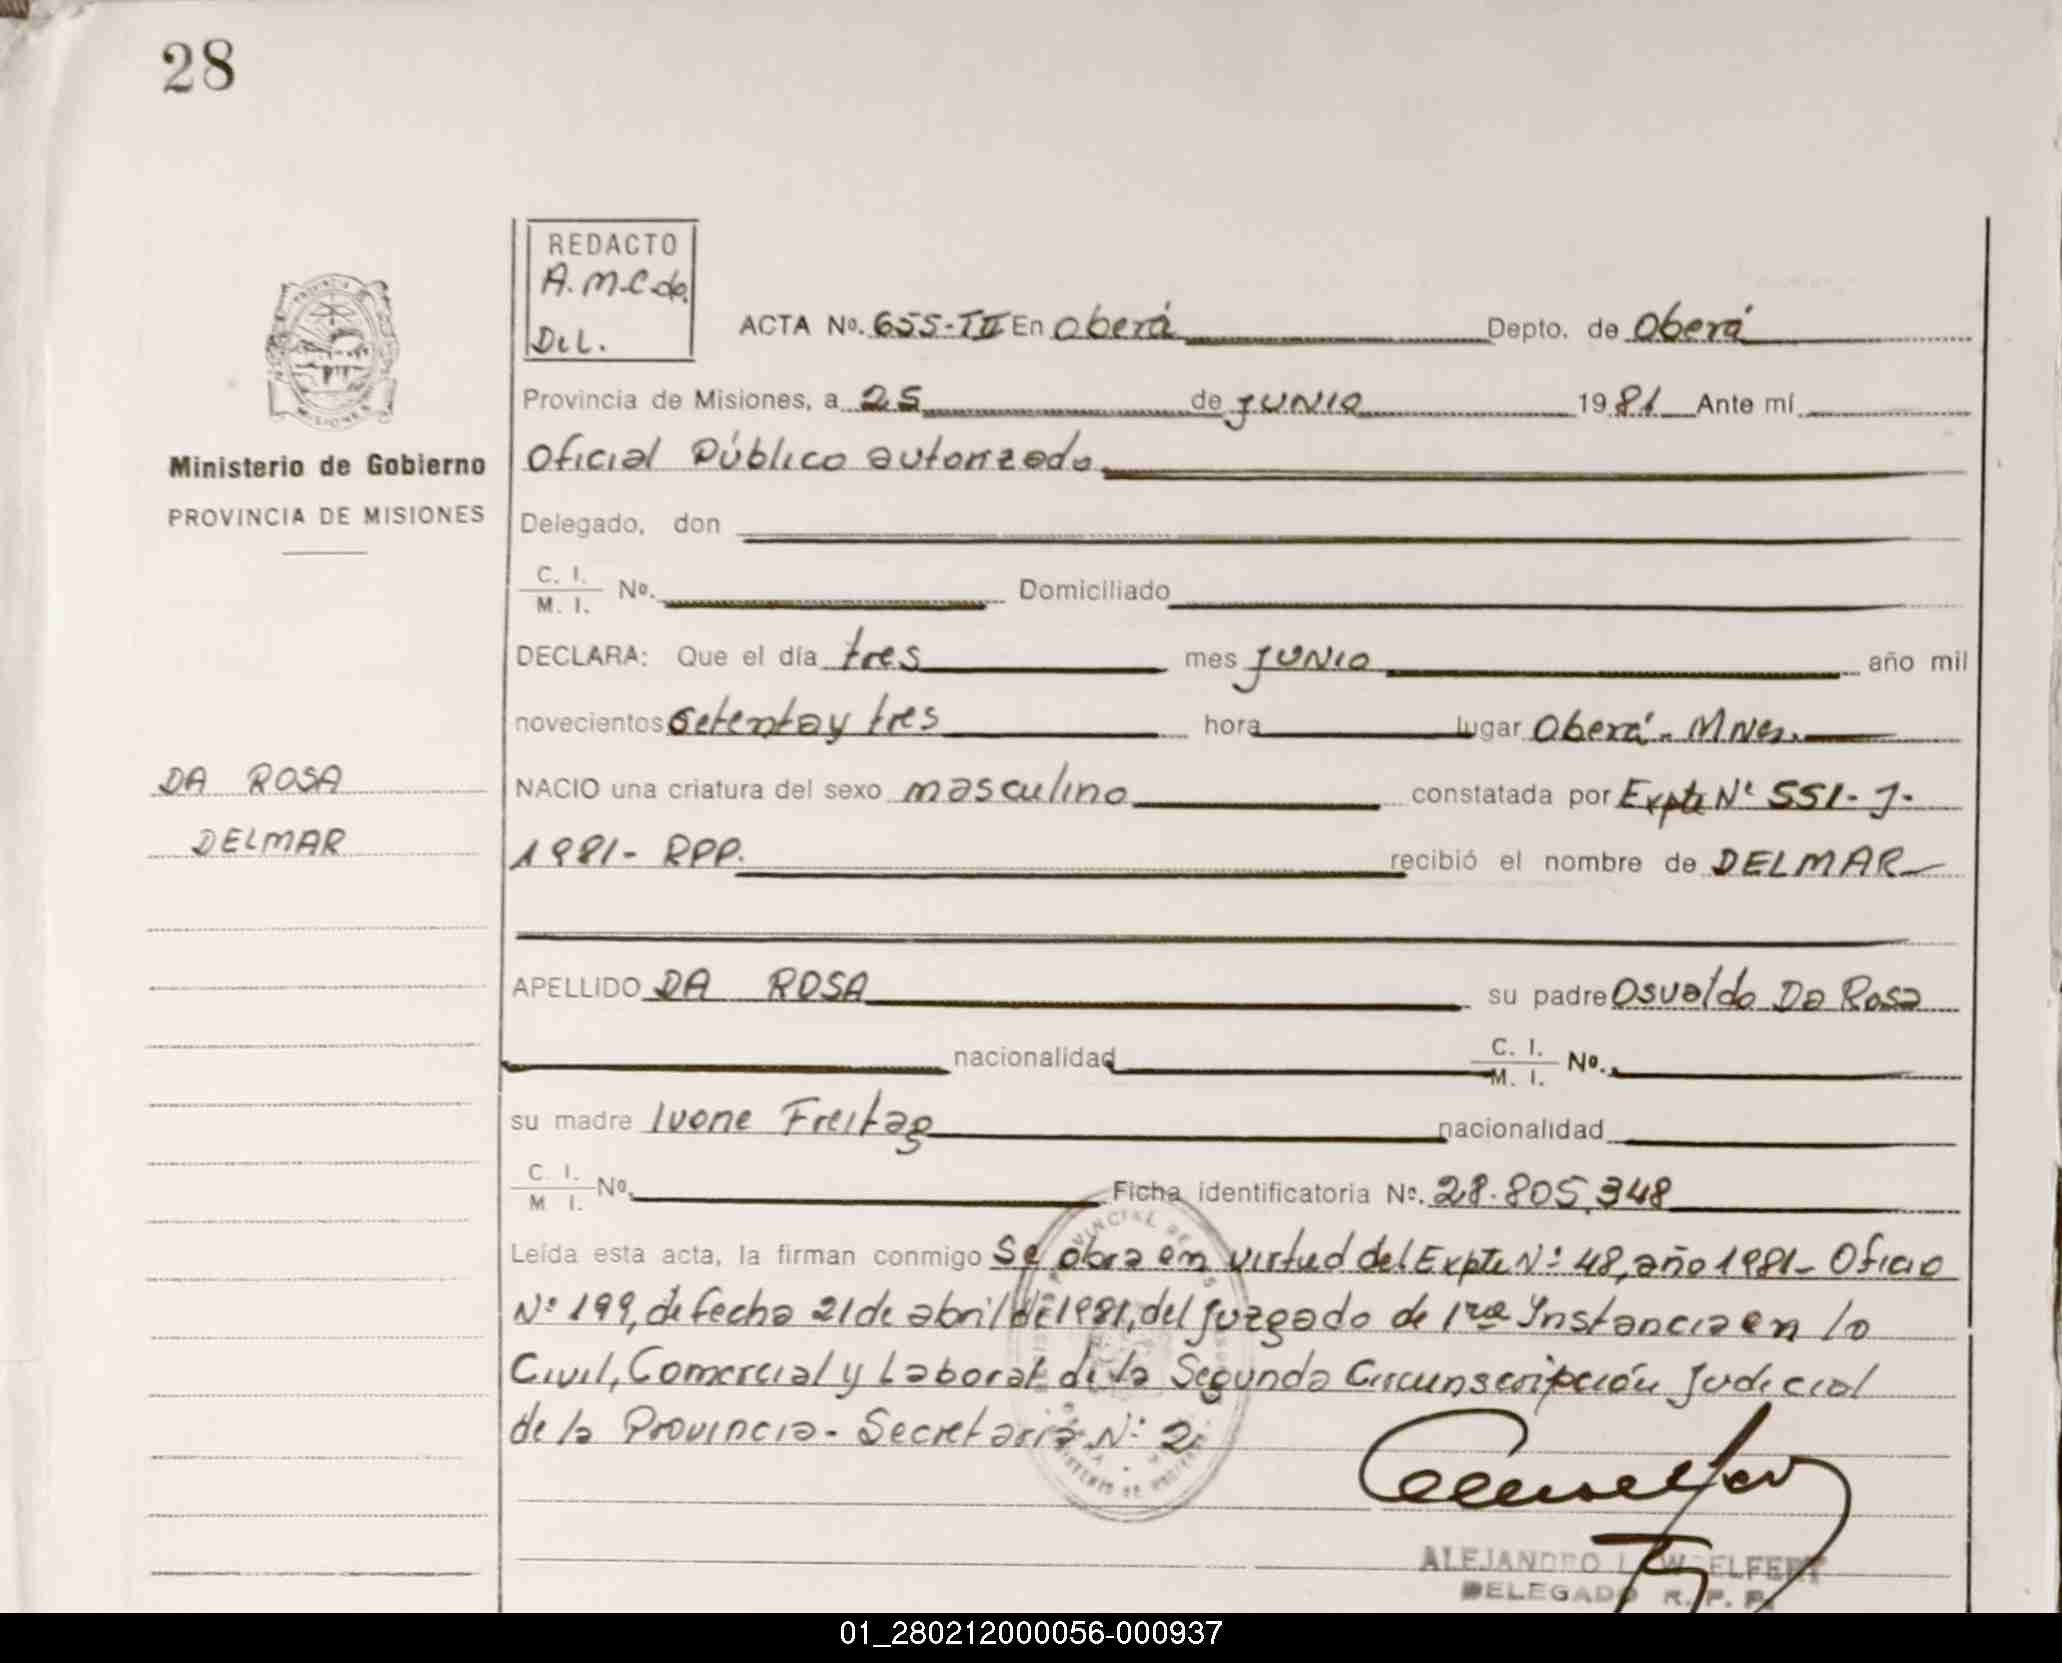 28
REDACTO
A.M.C.de.
DeL.
ACTA No. 655-TII En Oberá Depto. de Oberá
Provincia de Misiones, a 25 de junio 1981 Ante mí
Oficial Público autorizado
Ministerio de Gobierno
PROVINCIA DE MISIONES
Delegado, don
C. I.
M. I. No. Domiciliado
DECLARA: Que el día tres mes junio año mil
novecientos setenta y tres hora lugar Oberá - Mnes.
DA ROSA
DELMAR
NACIO una criatura del sexo masculino constatada por Expte Nº 551-J-
1981- RPP. recibió el nombre de DELMAR
APELLIDO DA ROSA su padre Osvaldo Da Rosa
nacionalidad C. I.
M. I. No.
su madre Ivone Freitag nacionalidad
C. I.
M I. No. Ficha identificatoria No. 28.805.348
Leída esta acta, la firman conmigo Se obra en virtud del Expte Nº 48, año 1981- Oficio
Nº 199, de fecha 21 de abril de 1981, del juzgado de 1ra Instancia en lo
Civil, Comercial y Laboral de la Segunda Circunscripción Judicial
de la Provincia - Secretaría Nº 2
ALEJANDRO L. WOELFERT
DELEGADO R. P. P.
01_280212000056-000937